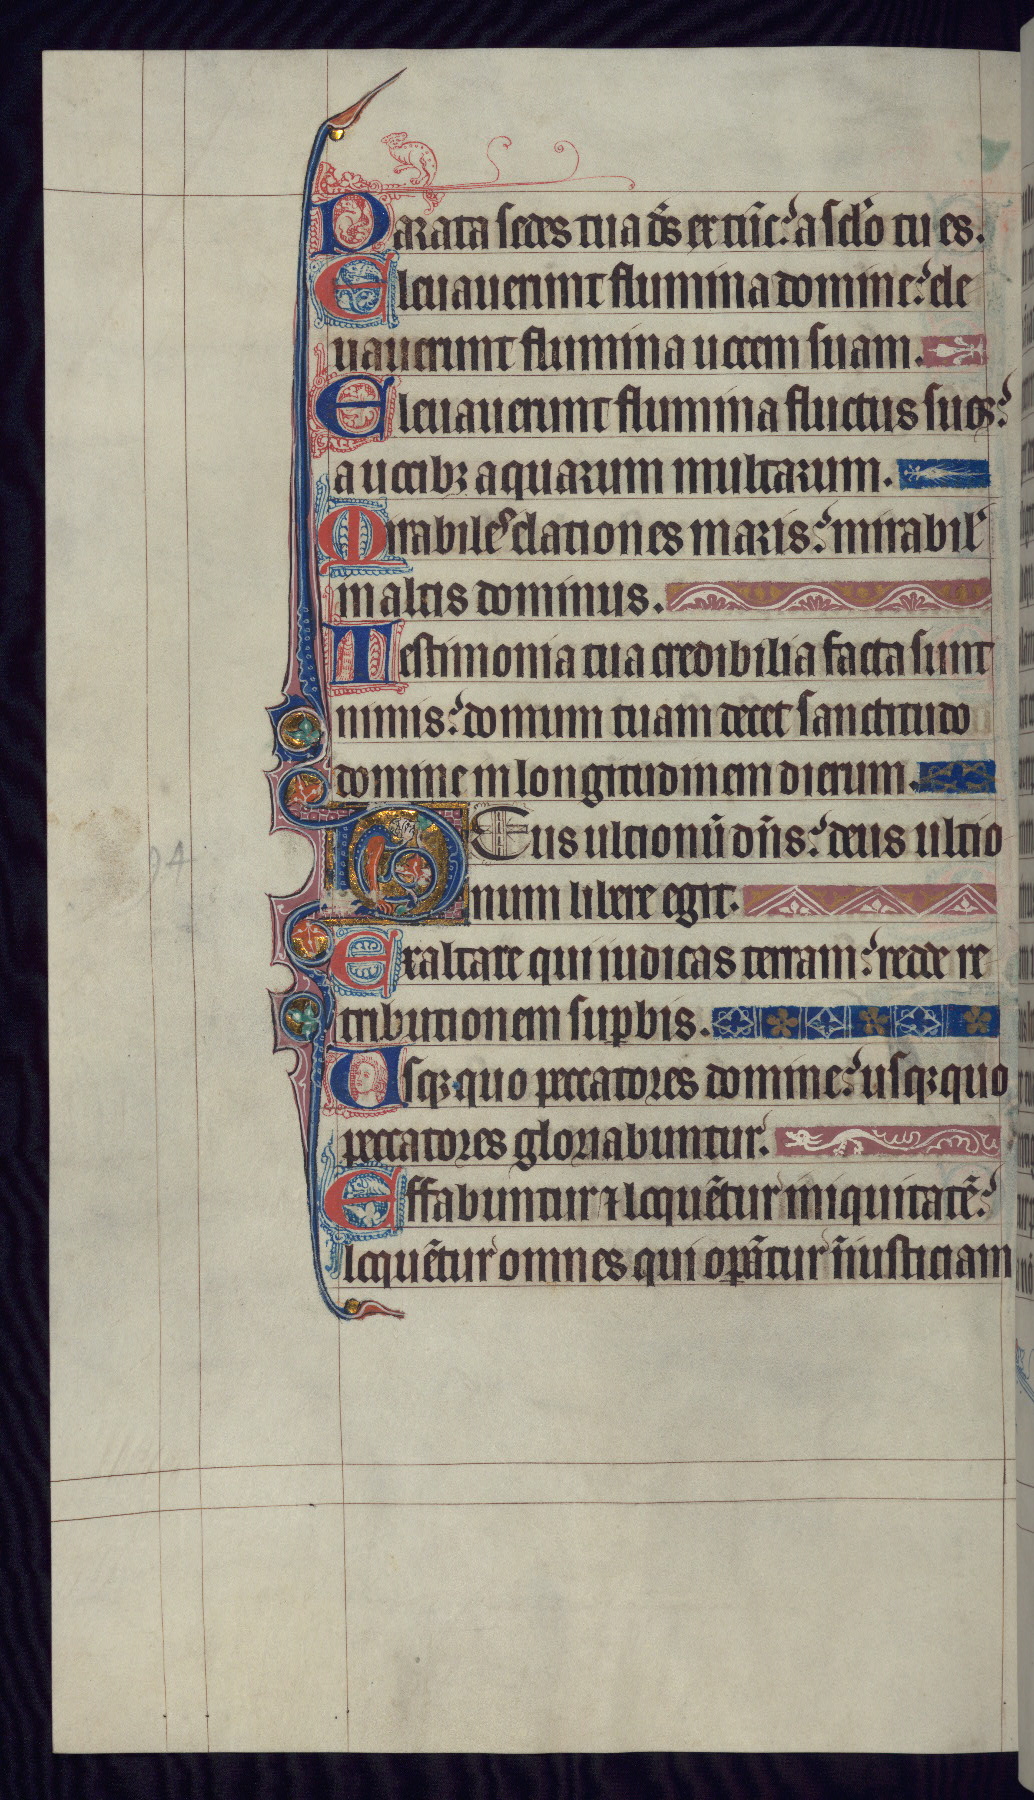 Parata sedes tua d̄s ex tūc: a sclo tu es.
Eleuauerunt flumina domine: ele
uauerunt flumina uocem suam.
Eleuauerunt flumina fluctus suos:
a uocibꝫ aquarum multarum.
Mirabiles elationes maris: mirabil'
in altis dominus.
Testimonia tua credibilia facta sunt
nimis: domum tuam decet sanctitudo
domine in longitudinem dierum.
Deus ultionū dn̄s: deus ultio
num libere egit.
Exaltare qui iudicas terram: redde re
tributionem suꝑbis.
Usqꝫ quo peccatores domine: usqꝫ quo
peccatores gloriabuntur.
Effabuntur ⁊ loquētur iniquitatē:
loquētur omnes qui oꝑātur iniusticiam
94